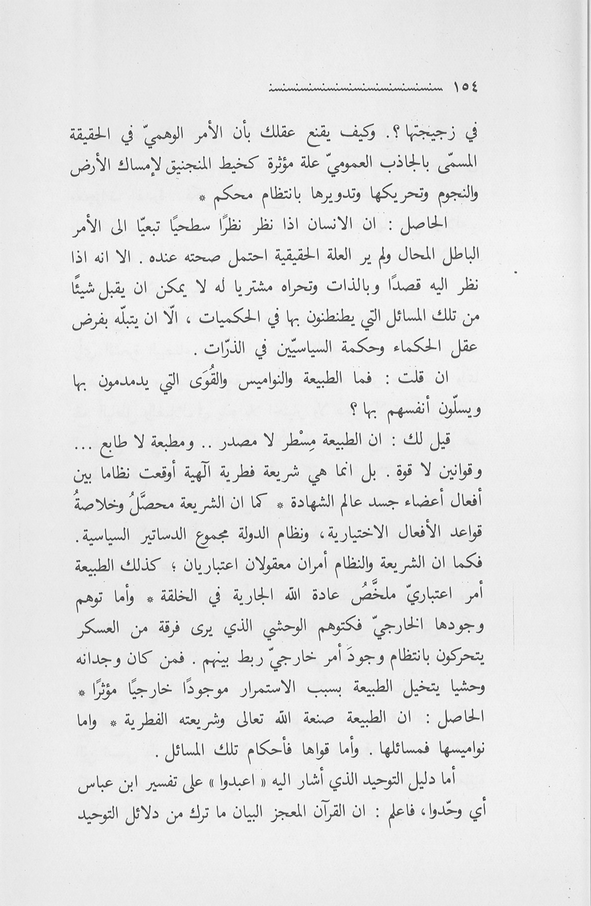 ١٥٤
في زجيجتها ؟. وكيف يقنع عقلك بأن الأمر الوهميّ في الحقيقة
المسمّى بالجاذب العموميّ علة مؤثرة كخيط المنجنيق لإمساك الأرض
والنجوم وتحريكها وتدويرها بانتظام محكم *
الحاصل : ان الانسان اذا نظر نظرًا سطحيًا تبعيّا الى الأمر
الباطل المحال ولم ير العلة الحقيقية احتمل صحته عنده . الا انه اذا
نظر اليه قصدًا وبالذات وتحراه مشتريا له لا يمكن ان يقبل شيئًا
من تلك المسائل التي يطنطنون بها في الحكميات ، الّا ان يتبلّه بفرض
عقل الحكماء وحكمة السياسيّين في الذرّات .
ان قلت : فما الطبيعة والنواميس والقُوَى التي يدمدمون بها
ويسلّون أنفسهم بها ؟
قيل لك : ان الطبيعة مِسْطر لا مصدر .. ومطبعة لا طابع ...
وقوانين لا قوة . بل انما هي شريعة فطرية آلهية أوقعت نظاما بين
أفعال أعضاء جسد عالم الشهادة * كما ان الشريعة محصَّلُ وخلاصةُ
قواعد الأفعال الاختيارية، ونظام الدولة مجموع الدساتير السياسية.
فكما ان الشريعة والنظام أمران معقولان اعتباريان ؛ كذلك الطبيعة
أمر اعتباريّ ملخَّصُ عادة الله الجارية في الخلقة * وأما توهم
وجودها الخارجيّ فكتوهم الوحشي الذي يرى فرقة من العسكر
يتحركون بانتظام وجودَ أمر خارجيّ ربط بينهم . فمن كان وجدانه
وحشيا يتخيل الطبيعة بسبب الاستمرار موجودًا خارجيًا مؤثرًا *
الحاصل : ان الطبيعة صنعة الله تعالى وشريعته الفطرية * واما
نواميسها فمسائلها . وأما قواها فأحكام تلك المسائل .
أما دليل التوحيد الذي أشار اليه « اعبدوا » على تفسير ابن عباس
أي وحّدوا، فاعلم : ان القرآن المعجز البيان ما ترك من دلائل التوحيد